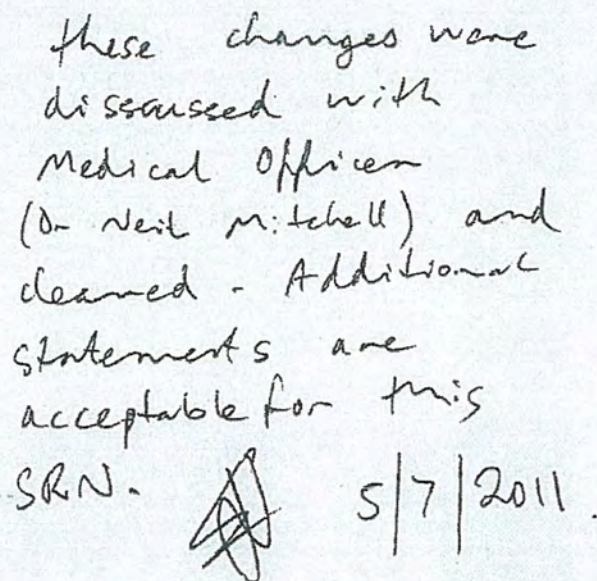 these changes were
disscussed with
Medical Officer
(Dr Neil Mitchell) and
cleared - Additional
statements are
acceptable for this
SRN. 5/7/2011.